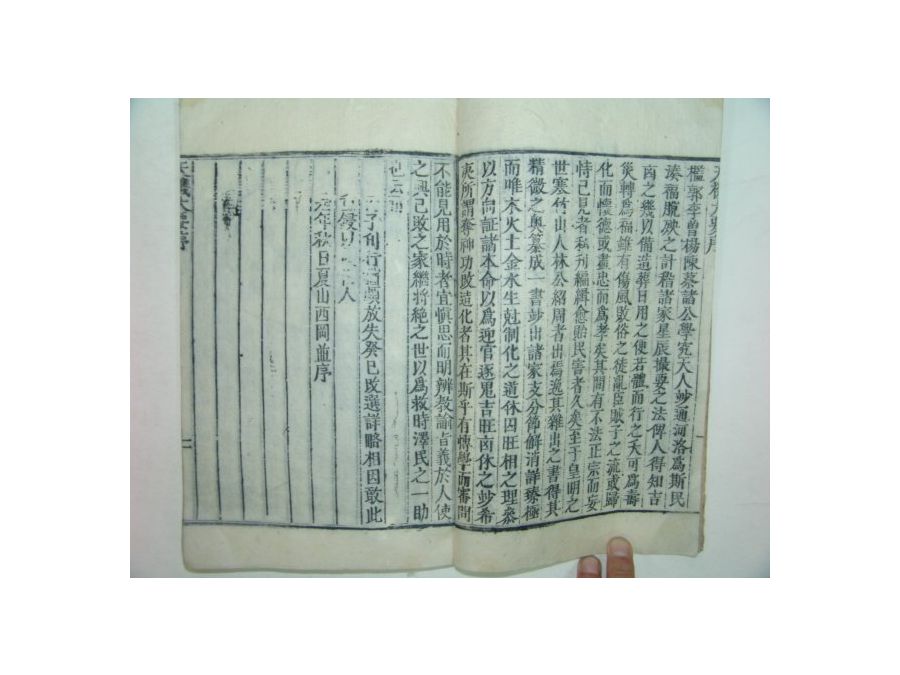 天機大要序
檻郭李曾楊陳蔡諸公學究天人妙通河洛爲斯民
湊福朧殃之計稽諸家星辰撮要之法俾人得知吉
凶之幾以備造葬日用之便若體而行之夭可爲壽
災轉爲福雖有傷風敗俗之徒亂臣賊子之流或歸
化而懷德或盡忠而爲孝矣其間有不法正宗而妄
恃己見者私刊編緝愈貽民害者久矣至于皇明之
世塞竹山人林公紹周者出焉逸其雜出之書得其
精微之奧纂成一書妙出諸家支分節解消詳臻極
而唯木火土金水生尅制化之道休囚旺相之理叅
以方向証諸本命以爲迎官逐鬼吉旺凶休之妙希
夷所謂奪神功改造化者其在斯乎有博學而審問
不能見用於時者宜愼思而明辨敎諭旨義於人使
之興已敗之家繼將絶之世以爲救時澤民之一助
也云
子刊行放失癸巳改選詳略相因敢此
侵 人
年秋日夏山西岡並序
天機大要序
一
二